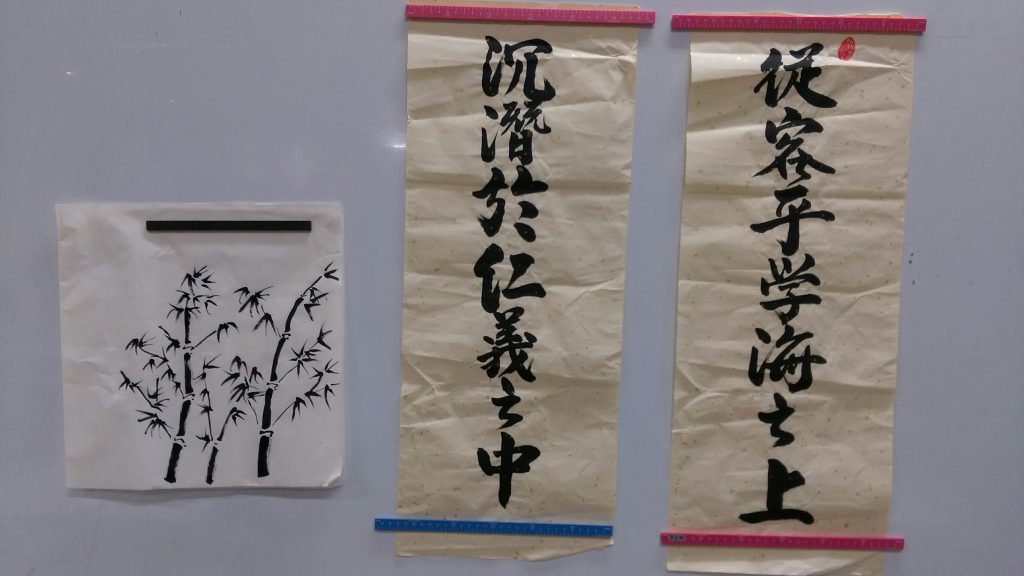 從容乎学海之上
沉潛於仁義之中